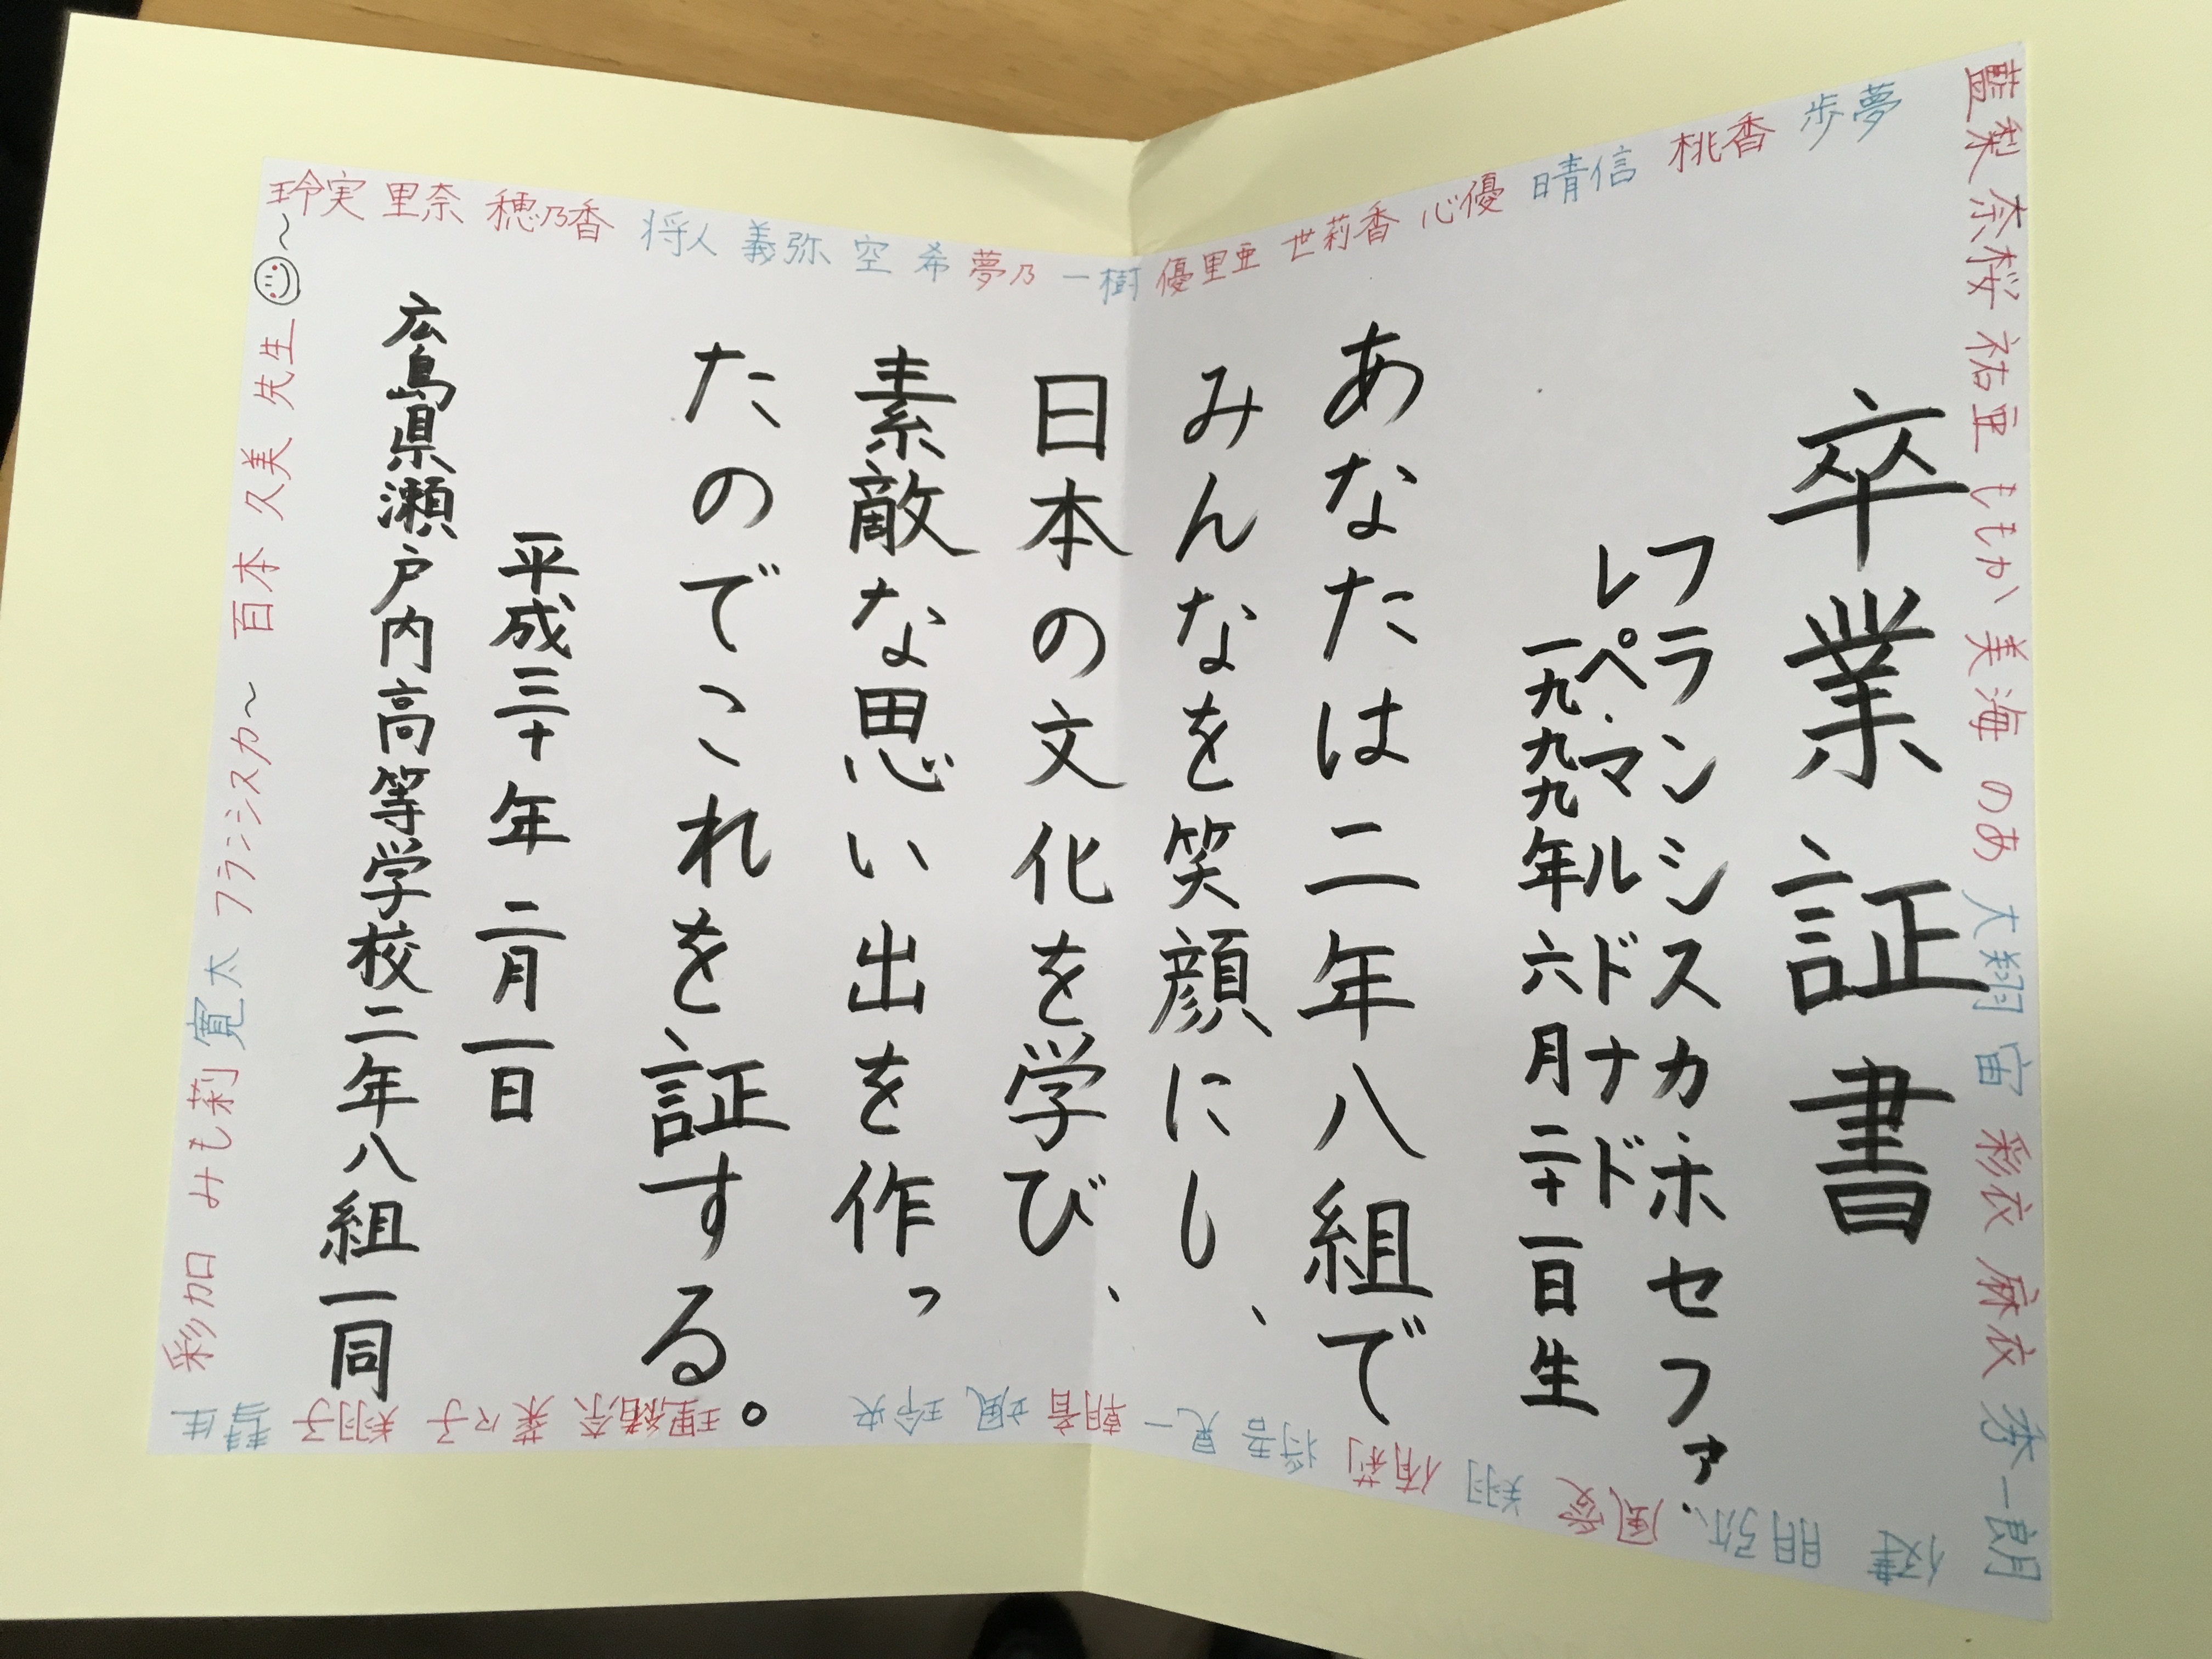 卒業証書
フランシスカホセファ、
レペ・マルドナド
一九九九年六月二十一日生
あなたは二年八組で
みんなを笑顔にし、
日本の文化を学び、
素敵な思い出を作っ
たのでこれを証する。
平成三十年二月一日
広島県瀬戸内高等学校二年八組一同
藍梨 奈桜 祐亜 ももか 美海 のあ 大翔 宙 彩衣 麻衣 秀一朗
玲実 里奈 穂乃香 将人 義弥 空 希 夢乃 一樹 優里亜 世莉香 心優 晴信 桃香 歩夢
彩加 みも莉 寛太 フランシスカ〜 百本 久美 先生 〜
健 明弥 風愛 翔 侑莉 将吾 晃一 朝音 颯 玲央 理緒奈 菜々子 翔子 彗生